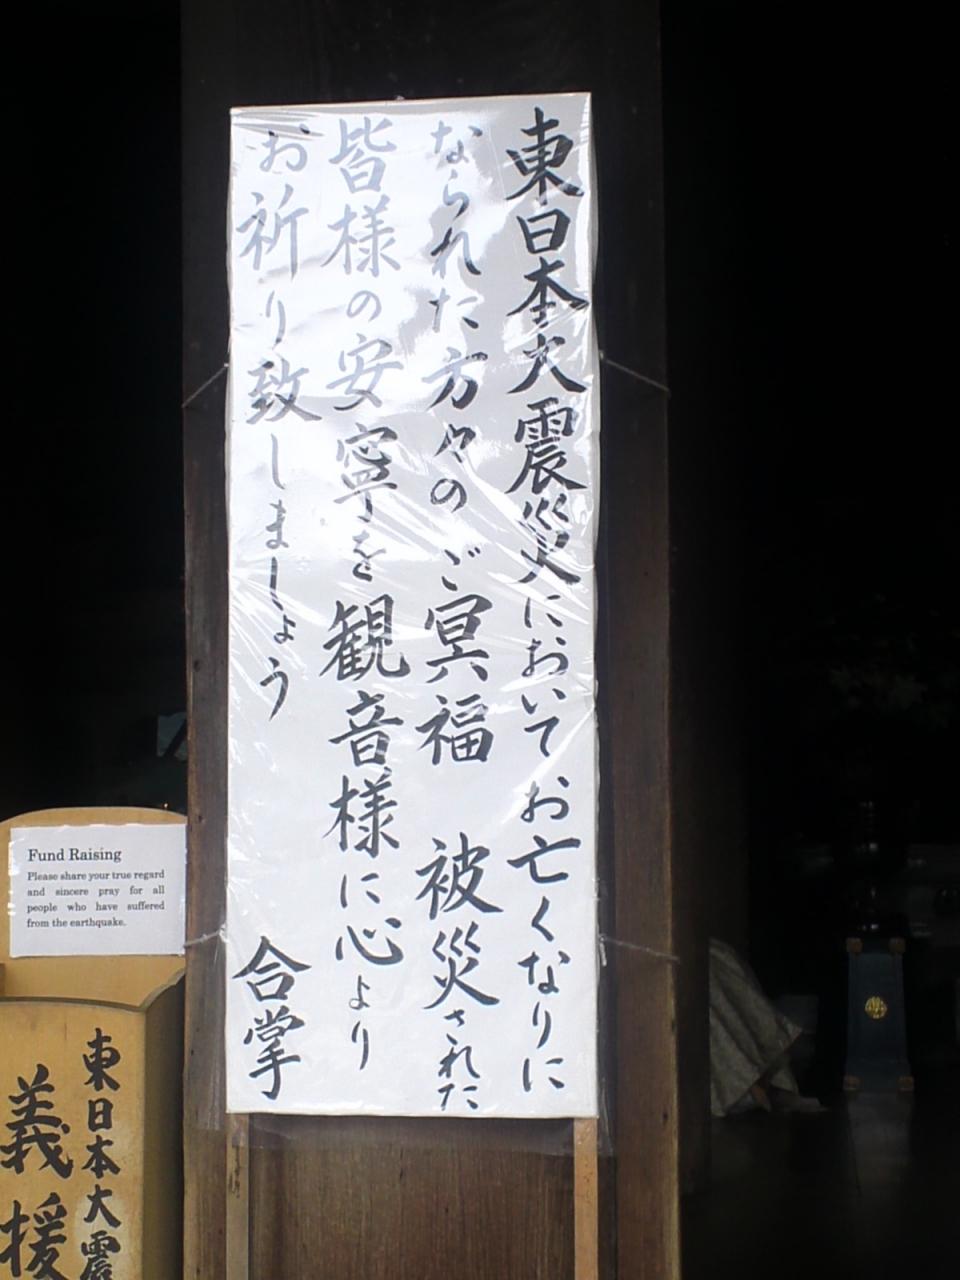 東日本大震災においてお亡くなりに
なられた方々のご冥福 被災された
皆様の安寧を観音様に心より
お祈り致しましょう 合掌
Fund Raising
Please share your true regard
and sincere pray for all
people who have suffered
from the earthquake.
東日本大震
義援